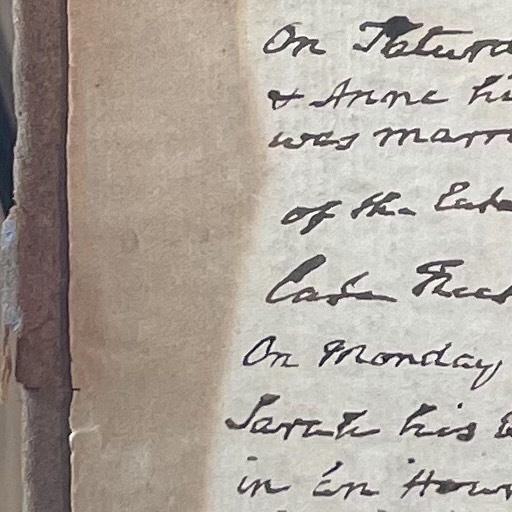 On Saturd
& Anne hi
was marri
of the Esta
Case
On Monday
Sarah his
in an Hour